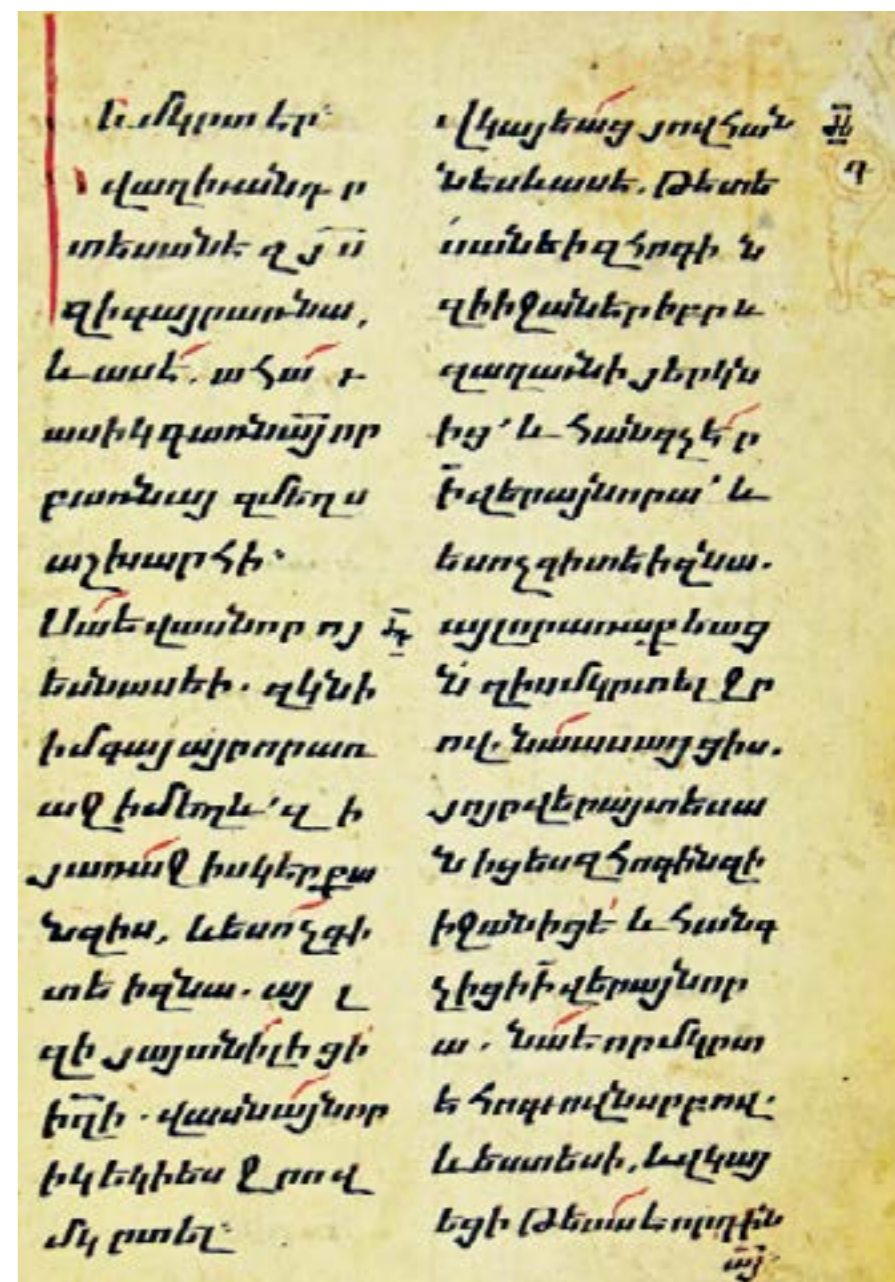 և մկրտէր։
վաղիւանդ ր
տեսանէ զ յ ս
զի գայր առ նա,
և ասէ. ահա՛ ւ
ասիկ գառնա՛յ որ
բառնայ զմեղս
աշխարհի։
Սա՛ է վասն որ ոյ
ես ասէի. զկնի
իմ գայ այր որ առ
աջ իմ եղև՛ զ ի
յառա՛ջ իսկ եր քա
նզիս, և ես ո՛չ գի
տէ ի զնա. այ լ
զի յայտնի լի ցի
իղի. վասն ա՛յնոր
իկ եկի ես ջ րով
մկ րտել։
վկայեա՛ց յովհան
նես և ասէ. թէ տե
սանէի զհոգի ն
զի իջանէր իբր և
զաղաւնի յերկն
ից՛ և հանգչէ՛ր
ի վերայ նորա՛ և
ես ոչ գիտէի զնա.
այլ որ առաքեաց
ն զիս մկրտել ջր
ով. նա՛ ասաց ցիս.
յոյր վերայ տեսա
ն իցես զ հոգին զի
իջանիցէ և հանգ
չիցի ի վերայ նոր
ա. նա՛ է որ մկրտ
է հոգւովն սրբով։
և ես տեսի, և վկայ
եցի թէ սա՛ է որդին
այ։